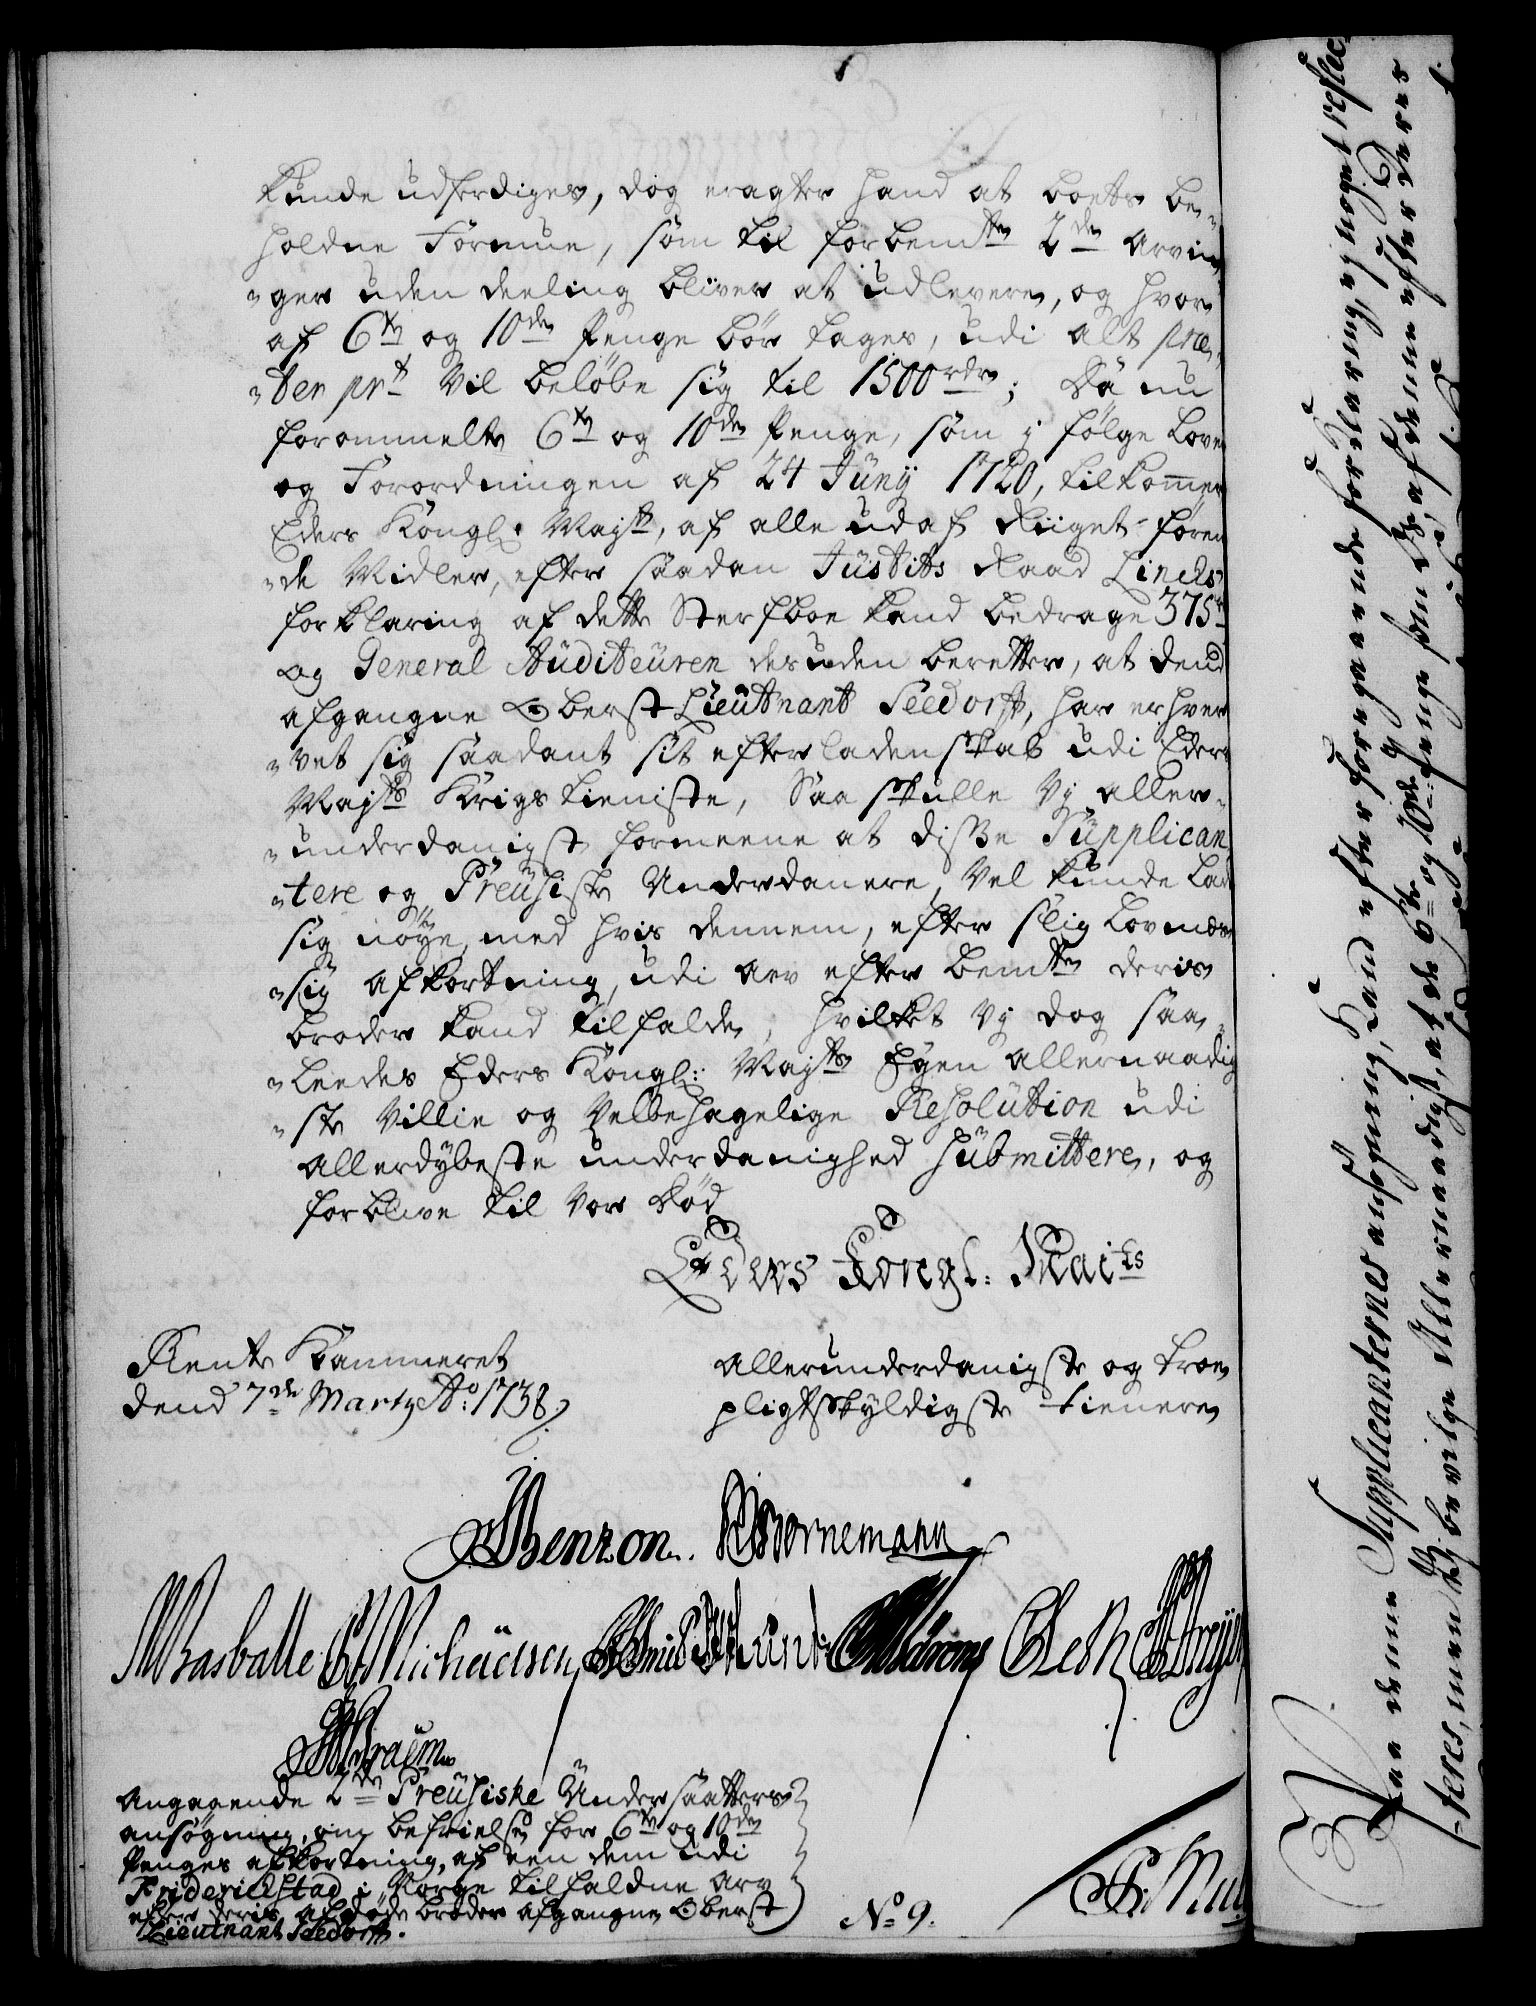 kunde udferdiges, dog eragter hand at boets be-
holdne Formue, som til forbemte 2de arvin-
-ger uden deeling bliver at udlevere, og hvor
af 6te og 10de Penge bør tages, udi alt præ-
-ter prt vil beløbe sig til 1500 rdr; Da nu
forommelte 6te og 10de Penge, som i følge Loven
og Forordningen af 24 Junij 1720, tilkommer
Eders Kongl. Majst, af alle udaf Riiget føren-
-de Midler, efter saadan Justits Raad Lincks
forklaring af dette Sterfboe kand bedrage 375 rd
og General Auditeuren desuden beretter, at dend
afgangne Oberst Lieutnant Seedorff, har erhver-
-vet sig saadant sit efterladenskab udi Eders
Majsts Krigs tieniste, Saa skulle vj aller-
-underdanigst formeene at disse Supplican-
-tere og Preusiske Underdanere, vel kunde lade
sig nøye, med hvis dennem, efter slig Lovmæs-
-sig afkortning, udi arv efter bemte deris
broder kand tilfalde; hvilket vj dog saa-
-leedes Eders Kongl: Majsts Egen allernaadig-
-ste Villie og Velbehagelige Resolution udi
allerdybeste underdanighed submittere, og
forblive til vor død
Eders Kongl. Maits
Rente Kammeret
dend 7de Marty Ao: 1738.
allerunderdanigste og troe
pligtskyldigste tienere
Benzon. Bornemann
Basballe Michaelsen
Angagende 2de Preusiske Undersaatters
ansøgning, om befrielse for 6te og 10de
Penges afkortning, af een dem udi
Friderichstad i Norge tilfaldne arv
efter deris afdøde broder afgangne Oberst
Lieutnant Seedorff.
No 9.
Paa denne Supplicanternes ansøgning, Kand efter foregaaende forklaring, ej noget reflec-
-teres, men Vj bevilge Allernaadigst, at de 6te og 10de Penge som Os af denne efter Deres